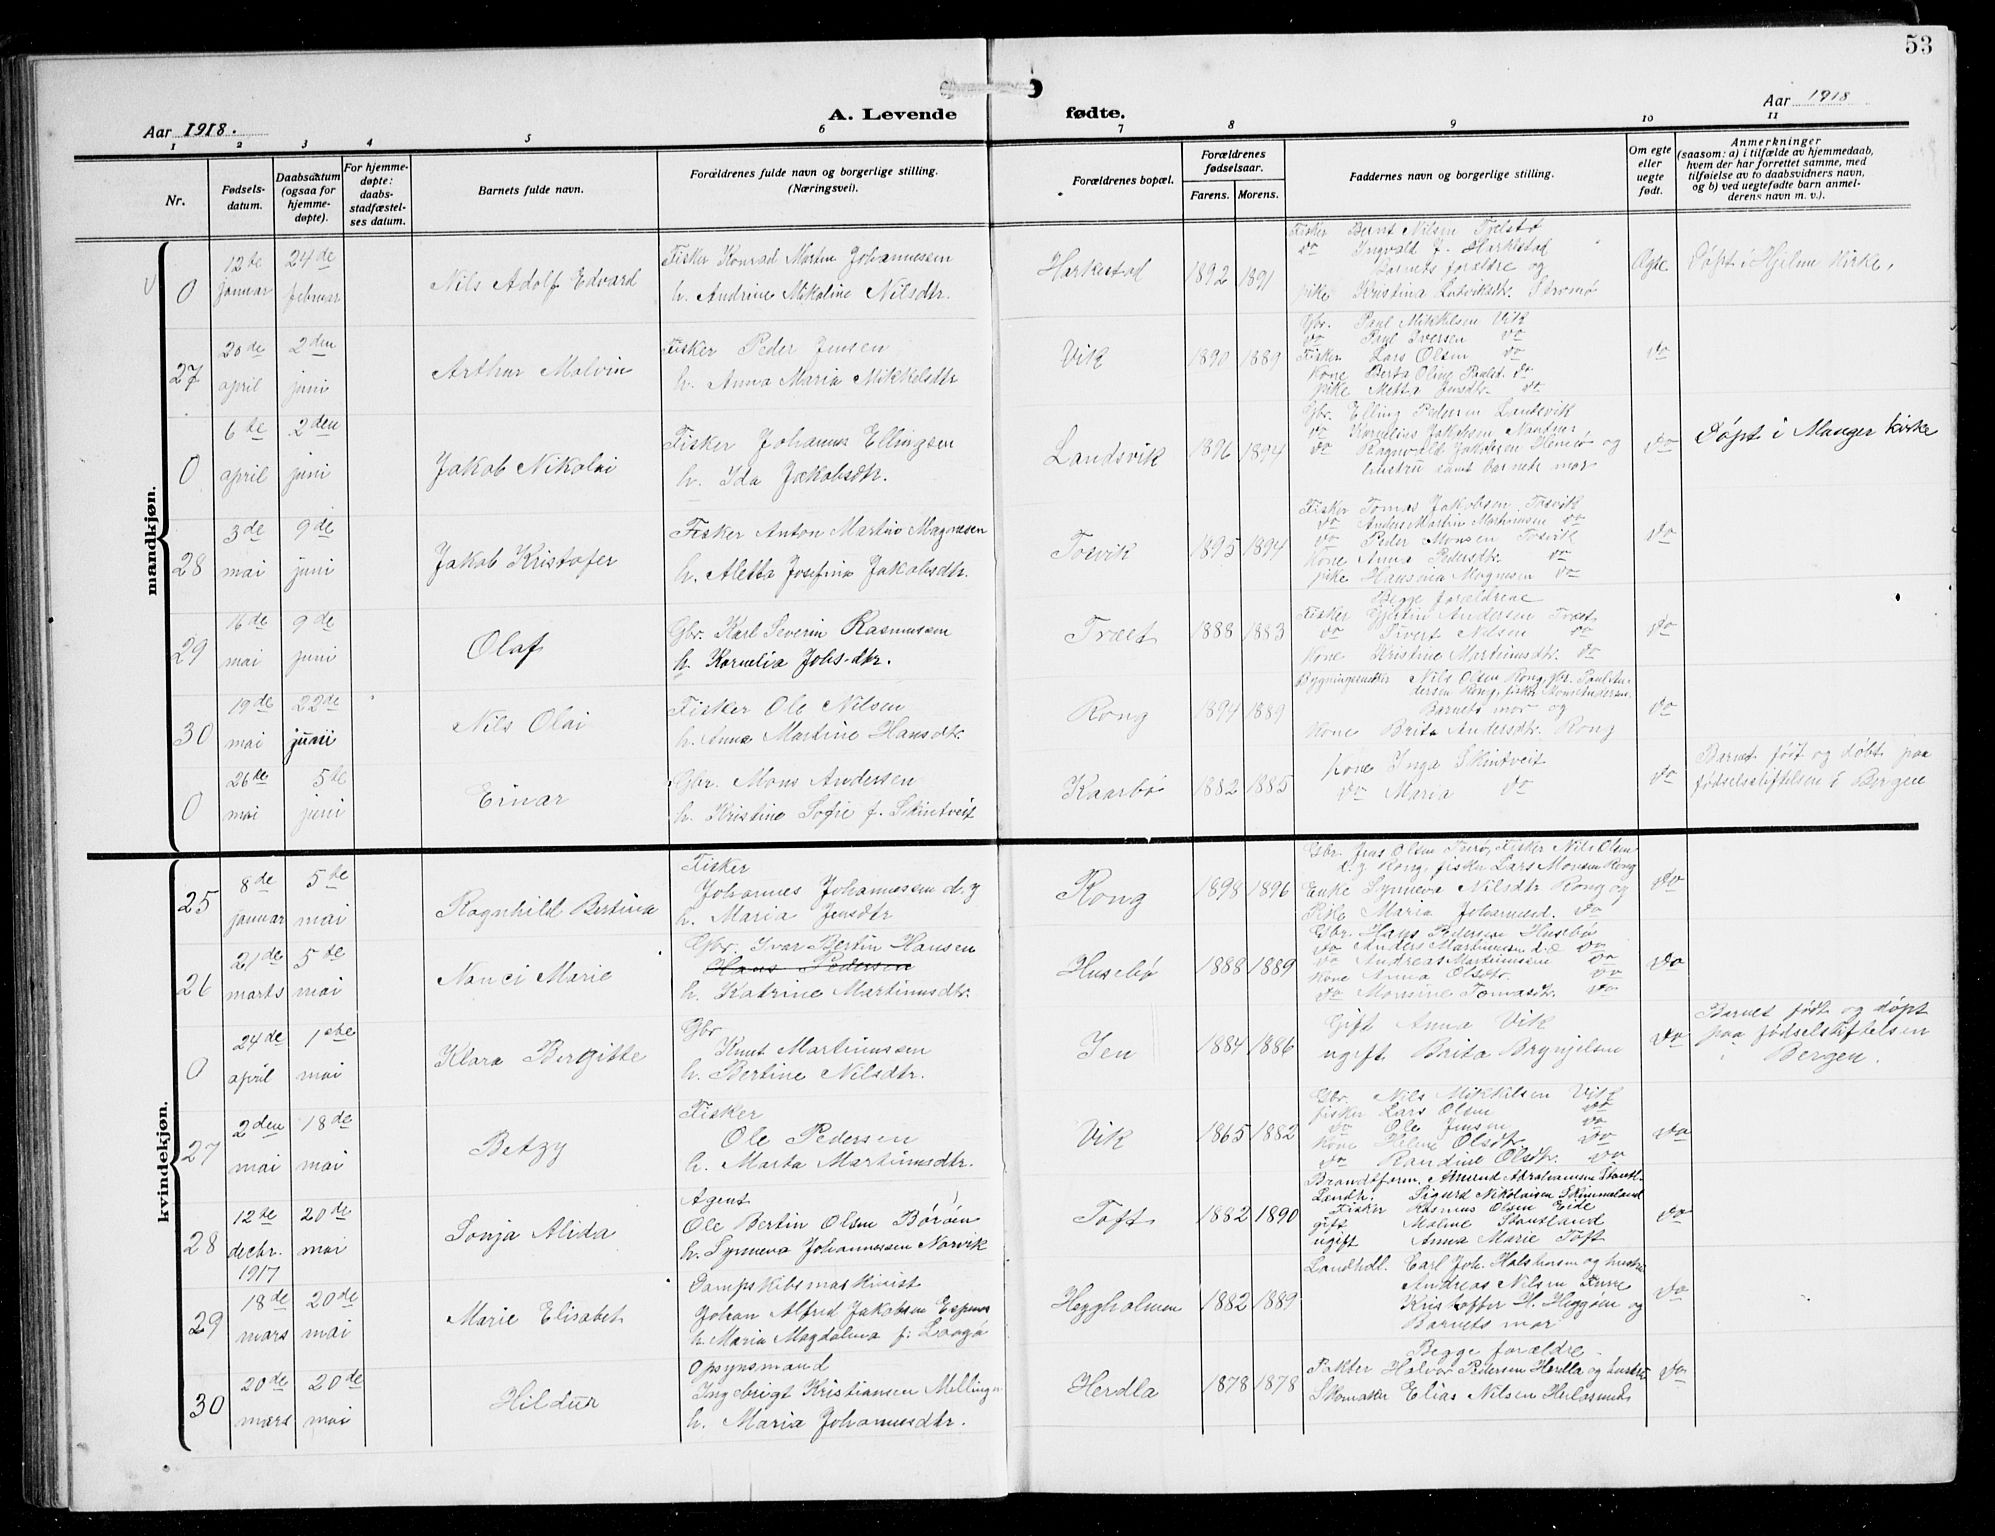 53
Aar 1918.
A. Levende fødte.
Aar 1918
1 2 3 4 5 6 7 8 9 10 11
Nr.
Fødsels-
datum.
Daabsdatum
(ogsaa for
hjemme-
døpte).
For hjemme-
døpte:
daabs-
stadfæstel-
ses datum.
Barnets fulde navn.
Forældrenes fulde navn og borgerlige stilling.
(Næringsvei).
Forældrenes bopæl.
Forældrenes
fødselsaar.
Farens. Morens.
Faddernes navn og borgerlige stilling.
Om egte
eller
uegte
født.
Anmerkninger
(saasom: a) i tilfælde av hjemmedaab,
hvem der har forrettet samme, med
tilføielse av to daabsvidners navn,
og b) ved uegtefødte barn anmel-
derens navn m. v.).
mandkjøn.
0
12te
januar
24de
februar
Nils Adolf Edvard
Fisker Konrad Martin Johannessen
h. Andrine Mikoline Nilsdtr.
Harkestad
1892 1891
Fisker Bernt Nilsen Tjelstø
do Ingvald J. Harkestad
Barnets forældre og
pike Kristina Ludviksdtr. Strømø
Ægte
Døpt i Hjelme kirke.
27
20de
april
2den
juni
Arthur Malvin
Fisker Peder Jensen
h. Anna Maria Mikkelsdtr
Vik
1890 1889
Gbr. Paul Mikkelsen Vik
do Paul Iversen do
Fisker Lars Olsen do
Kone Berta Oline Paulsd. do
pike Metta Jensdtr. do
do
0
6te
april
2den
juni
Jakob Nikolai
Fisker Johannes Ellingsen
h. Ida Jakobsdtr.
Landsvik
1896 1894
Gbr. Elling Pedersen Landsvik
do Kornelius Jakobsen
do Ragnvald Jakobsen og
hustru samt barnets mor
do
Døpt i Manger kirke
28
3de
mai
9de
juni
Jakob Kristofer
Fisker Anton Martin Magnesen
h. Aletta Josefine Jakobsdtr.
Tosvik
1895 1894
Fisker Tomas Jakobsen Tosvik
do Anders Martin Martinusen do
do Peder Monsen Tosvik
Kone Anna Pedersdtr. do
pike Hansina Magnesen do
do
29
16de
mai
9de
juni
Olaf
Gbr. Karl Severin Rasmussen
h. Kornelia Johs-dtr.
Træet
1888 1883
Begge forældrene
Fisker Andersen Træet
do Sivert Nilsen do
Kone Kristine Martinusdtr. do
do
30
19de
mai
22de
juni
Nils Olai
Fisker Ole Nilsen
h. Anna Martine Hansdtr.
Rong
1894 1889
Bygningssnekker Nils Olsen Rong, gbr. Paul An-
dersen Rong, fisker Mons Andersen
Barnets mor og
Kone Brita Andersdtr. Rong
do
0
26de
mai
5te
juni
Einar
Gbr. Mons Andersen
h. Kristine Sofie f. Skintveit
Kaarbø
1882 1885
Kone Inga Skintveit
do Maria do
do
Barnet født og døbt paa
fødselsstiftelsen i Bergen
kvindekjøn.
25
8de
januar
5te
mai
Ragnhild Bertina
Fisker
Johannes Johannessen d.y
h. Maria Jensdtr
Rong
1898 1896
Gbr. Jens Olsen Turø, fisker Nils Olsen
d.y Rong, fisker Lars Monsen Rong
Enke Synneva Nilsdtr Rong og
Pike Maria Johannesd. do
do
26
21de
marts
5te
mai
Nanci Marie
Gbr. Ivar Bertin Hansen
Hans Pedersen
h. Katrine Martinusdtr.
Husebø
1888 1889
Gbr. Hans Pedersen Husebø
do Anders Martinussen d.e do
do Andreas Martinussen do
Kone Anna Olsdtr. do
do Monsine Tomasdtr. do
do
0
24de
april
1ste
mai
Klara Bergitte
Gbr
Knut Martinussen
h. Bertine Nilsdtr.
Jen
1884 1886
Gift Anna Vik
ugift Brita Brynjelsen
do
Barnet født og døpt
paa fødselstiftelsen
i Bergen.
27
2den
mai
18de
mai
Betzy
Fisker
Ole Pedersen
h. Marta Martinusdtr.
Vik
1865 1882
Gbr. Nils Mikkelsen Vik
fisker Lars Olsen do
do Ole Jensen do
Kone Helene Olsdtr do
do Randine Olsdtr. do
do
28
12te
decbr.
1917
20de
mai
Sonja Alida
Agent
Ole Bertin Olsen Børøen
h. Synneva Johannessen Narvik
Toft
1882 1890
Brandtform. Amund Abrahamsen Stautl.
Landh. Sigurd Nikolaisen Skimmeland
Fisker Rasmus Olsen Eide
gift Maline Stautland
ugift Anna Marie Toft
do
29
18de
mars
20de
mai
Marie Elisabet
Dampskibsmaskinist
Johan Alfred Jakobsen Espenes
h. Maria Magdalena f.
Heggholmen
1882 1889
Landhdl. Carl Joh. Halstensen og hustru
Andreas Nilsen
Kristoffer H. Heggøen og
Barnets mor
do
30
20de
mars
20de
mai
Hildur
Opsynsmand
Ingebrigt Kristiansen Mellingen
h. Maria Johannesdtr.
Herdla
1878 1878
Begge forældre
Pakter Halvor Pedersen Herdla og hustru
Skomaker Elias Nilsen Herlasund
do